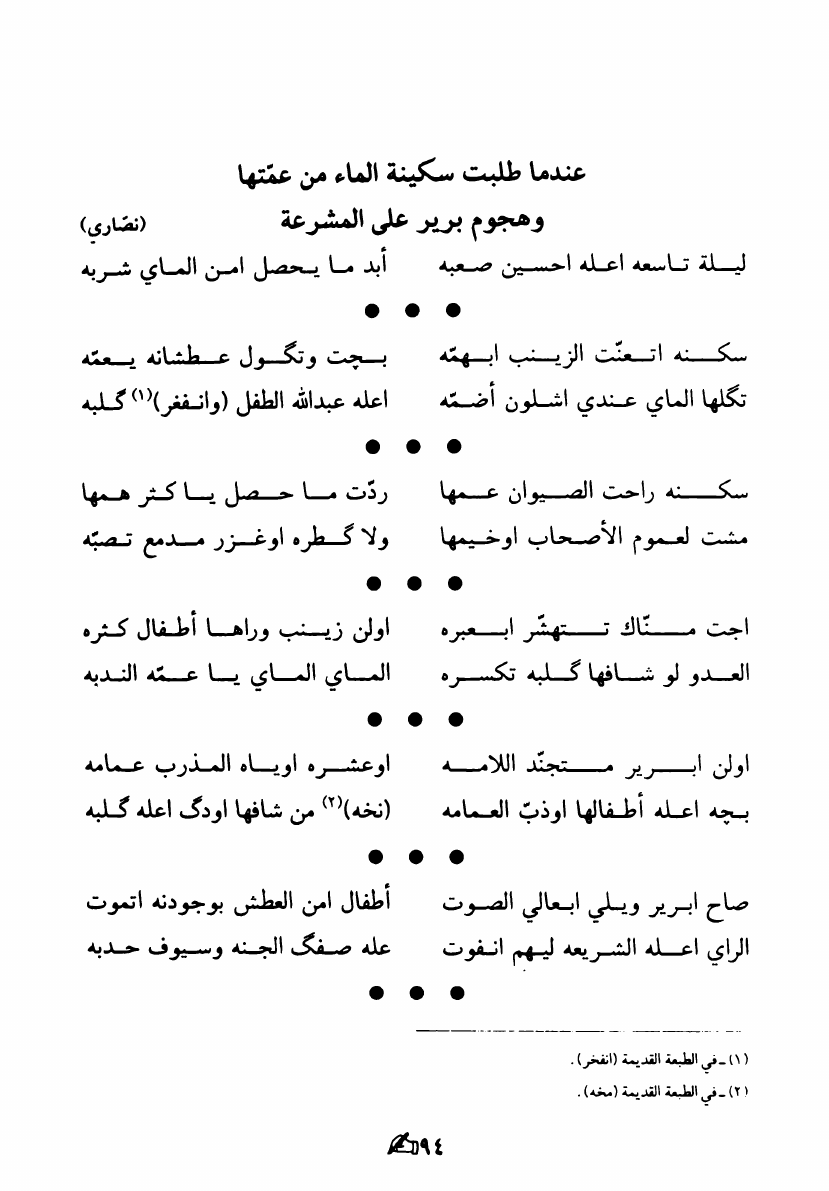 عندما طلبت سكينة الماء من عمّتها
وهجوم برير على المشرعة (نصّاري)
ليلة تاسعه اعله احسين صعبه أبد ما يحصل امن الماي شربه
● ● ●
سكنه اتعنّت الزينب ابهمّه بچت وتگول عطشانه يعمّه
تگلها الماي عندي اشلون أضمّه اعله عبدالله الطفل (وانفغر)(١) گلبه
● ● ●
سكنه راحت الصيوان عمها ردّت ما حصل يا كثر همها
مشت لعموم الأصحاب اوخيمها ولا گطره اوغزر مدمع تصبّه
● ● ●
اجت منّاك تتهشّر ابعبره اولن زينب وراها أطفال كثره
العدو لو شافها گلبه تكسره الماي الماي يا عمّه الندبه
● ● ●
اولن ابرير متجنّد اللامه اوعشره اوياه المذرب عمامه
بچه اعله أطفالها اوذبّ العمامه (نخه)(٢) من شافها اودگ اعله گلبه
● ● ●
صاح ابرير ويلي ابعالي الصوت أطفال امن العطش بوجودنه اتموت
الراي اعله الشريعه ليهم انفوت عله صفگ الجنه وسيوف حدبه
● ● ●
(١) ـ في الطبعة القديمة (انفخر).
(٢) ـ في الطبعة القديمة (مخه).
٩٤